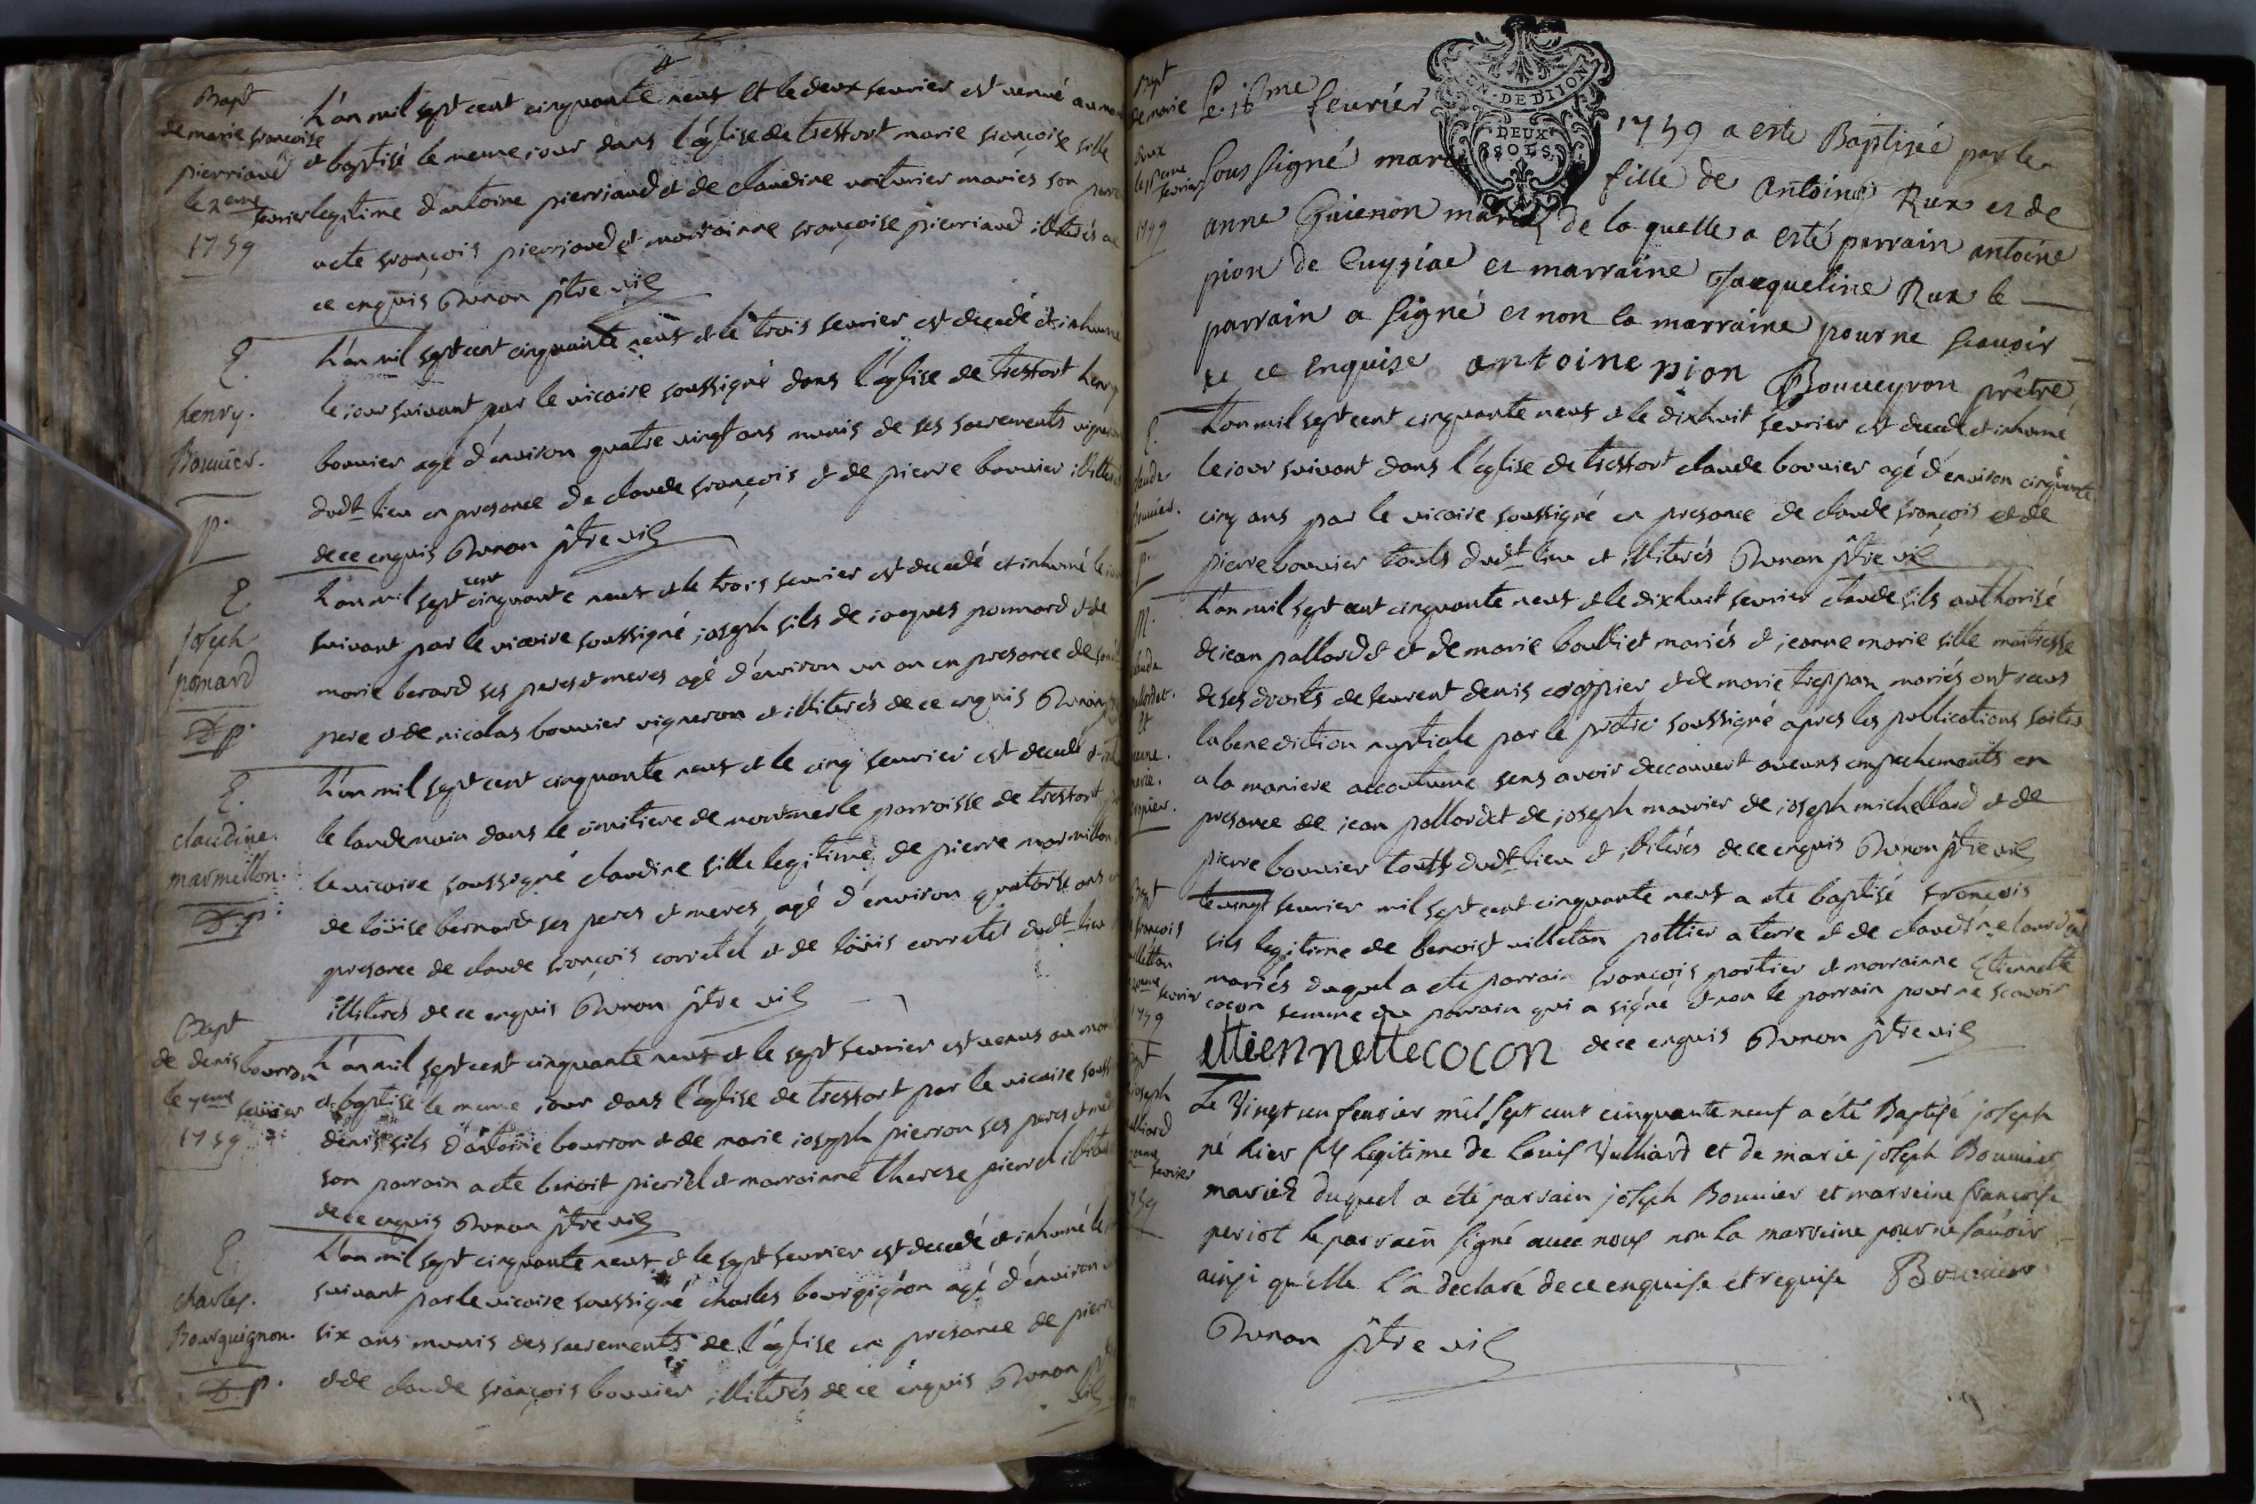 Bapt
de marie francoise
pierriaud
le 2eme
fevrier
1759
L'an mil sept cent cinquante neuf et le deux fevrier est venüe au
et baptisé le meme jour dans l'église de tressort marie françoise fille
legitime d'antoine pierriaud et de claudine voiturier mariés son
acte françois pierriaud et marrainne françoise pierriaud illiterés
ce enquis Dunon ptre vic
E.
henry.
Bouuier.
p.
L'an mil sept cent cinquante neuf et le trois fevrier est decedé et inhumé
le jour suivant par le vicaire soussigné dans l'église de tressort henry
bouvier agé d'environ quatre vingt ans munis de ses sacrements
dudt lieu en presance de claude françois et de pierre bouvier
de ce enquis Dunon ptre vic
E
joseph
ponard
D p.
L'an mil sept cent cinquante neuf et le trois fevrier est decedé et inhumé le
suivant par le vicaire soussigné joseph fils de jacques ponnard et de
marie berard ses peres et meres agé d'environ un an en presance de
pere et de nicolas bouvier vigneron et illiterés de ce enquis Dunon
E.
claudine.
marmillon.
D. p.
L'an mil sept cent cinquante neuf et le cinq fevrier est decedé et
le landemain dans le cimitiere de montmerle parroisse de tressort
le vicaire soussigné claudine fille legitime de pierre marmillon
de loüise bernard ses peres et meres agé d'environ quatorse ans
presance de claude françois corretel et de loüis corretel dudt lieu
illiterés de ce enquis Dunon ptre vic
Bapt
de denis bourron
le 7eme fevrier
1759
L'an mil sept cent cinquante neuf et le sept fevrier est venus au
et baptisé le meme jour dans l'église de tressort par le vicaire
denis fils d'antoine bourron et de marie joseph pierron ses peres et
son parrain a ete benoit pierrel et marrainne therese pierrel
de ce enquis Dunon ptre vic
E.
charles.
Bourguignon.
D. p.
L'an mil sept cinquante neuf et le sept fevrier est decedé et inhumé le
suivant par le vicaire soussigné charles bourgignon agé d'environ
six ans munis des sacrements de l'église en presance de pierre
et de claude françois bouvier illiterés de ce enquis Dunon
vic
Bapt
de marie
Rux
fevrier
1759
GEN. DE DIJON
DEUX
SOLS.
Le 16me feurier 1759 a esté Baptizée par le
sous signé marie fille de antoine Rux et de
anne Guienon mariez de la quelle a esté parrain antoine
pion de Cuysiae et marraine Jacqueline Rux le
parrain a signé et non la marraine pour ne scauoir
de ce enquise antoine pion Bouueyron prêtre
L'an mil sept cent cinquante neuf et le dixhuit fevrier est decedé et inhumé
le jour suivant dans l'église de tressort claude bouvier agé d'environ cinquante
cinq ans par le vicaire soussigné en presance de claude françois et de
pierre bouvier touts dudt lieu et illiterés Dunon ptre vic
M.
L'an mil sept cent cinquante neuf et le dixhuit fevrier claude fils authorisé
de jean pallordet et de marie boulliet mariés et jeanne marie fille maitresse
de ses droits de feurent denis et de marie mariés ont reçus
la benediction nuptiale par le pretre soussigné apres les publications faites
a la maniere accoutumé sens avoir deccouvert aucuns empechements en
presance de jean pallordet de joseph mauvier de joseph michellard et de
pierre bouvier touts dudt lieu et illiterés de ce enquis Dunon ptre vic
Le vingt fevrier mil sept cent cinquante neuf a ete baptisé françois
fils legitime de benoist villetan pottier a terre et de claudine
mariés duquel a ete parrain françois portier et marrainne Etiennette
cocon femme du parrain qui a signé et non le parrain pour ne scavoir
ettiennette cocon de ce enquis Dunon ptre vic
Le Vingt un feurier mil sept cent cinquante neuf a été Baptisé joseph
né hier fils legitime de Louis Vulliard et de marie joseph Bouuier
mariés duquel a été parrain joseph Bouuier et marreine françoise
periot le parrain signé auec nous non la marreine pour ne sauoir
ainsi qu'elle l'a declaré de ce enquise et requise Bouuier
Dunon ptre vic